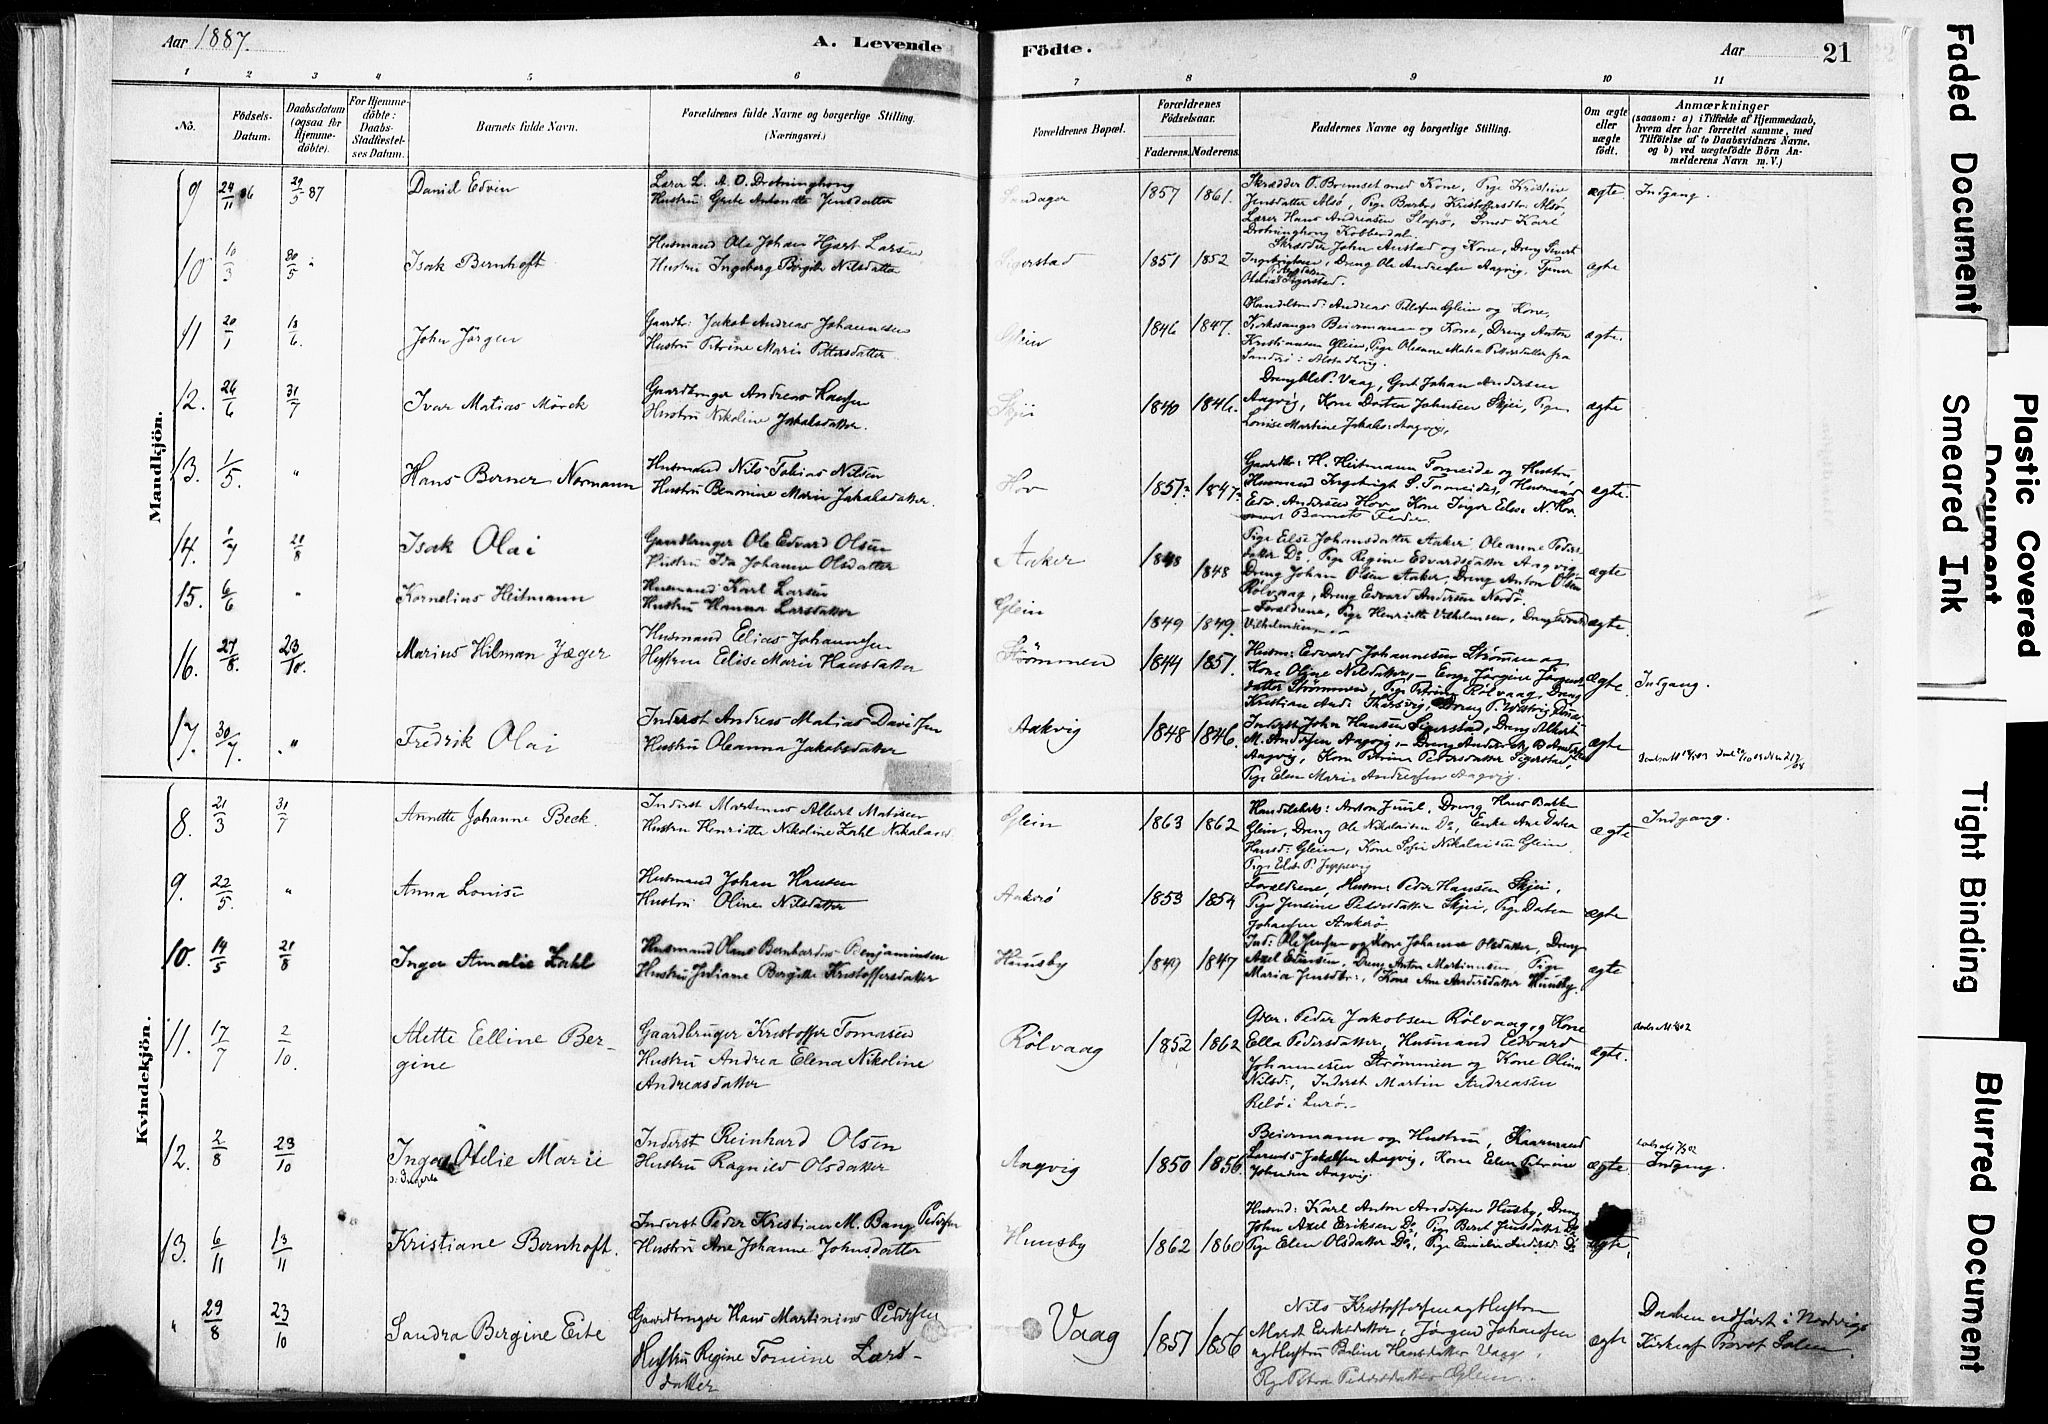 Aar 1887.
A. Levende Födte.
Aar
21
1 2 3 4 5 6 7 8 9 10 11
No.
Födsels-Datum.
Daabsdatum (ogsaa for Hjemmedöbte).
For Hjemmedöbte: Daabs-Stadfæstelses Datum.
Barnets fulde Navn.
Forældrenes fulde Navne og borgerlige Stilling. (Næringsvei.)
Forældrenes Bopæl.
Forældrenes Födselsaar.
Faderens. Moderens.
Faddernes Navne og borgerlige Stilling.
Om ægte eller uægte født.
Anmærkninger
(saasom: a) i Tilfælde af Hjemmedaab, hvem der har forrettet samme, med Tilföielse af to Daabsvidners Navne, og b) ved uægtefödte Börn Anmelderens Navn m. V.)
Mandkjön.
9 24/11 86 29/5 87 Daniel Edvin
Lærer L. A. O. Drotninghaug
Hustru Grete Antonette Jensdatter
Sandager 1857 1861.
Skrædder O. Bremset med Kone, Pige Kristine
Jensdatter Alsö, Pige Barbro Kristoffersdtr Alsö,
Lærer Hans Andreasen Slapö, Smed Karl
Drotninghaug Kobberdal.
ægte Indgang.
10 10/3 30/5 " Isak Bernhoft
Husmand Ole Johan Hjort Larsen
Hustru Ingeborg Birgitte Nilsdatter
Sigerstad 1851 1852
Skrædder John Austad og Kone, Dreng Sivert
Ingebrigtsen, Dreng Ole Andreasen Aagvig, Tjener
Sigerstad.
ægte
11 20/1 13/6. John Jörgen
Gaardbr: Jakob Andreas Johannesen
Hustru Petrine Marie Pettersdatter.
Glein 1846 1847.
Handelsmd: Andreas Petersen Glein og Kone,
Kirkesanger Beiermann og Kone, Dreng Anton
Kristiansen Glein, Pige Olesane Matea Pettersdatter fra
Sandö i Alstadhoug.
ægte.
12. 26/6 31/7 Ivar Matias Mörck
Gaardbruger Andreas Hansen
Hustru Nikoline Jakobsdatter.
Skjei 1840 1846.
Dreng Ole P. Vaag, Gmd Johan Andersen
Aagvig, Kone Dorthea Johnsen Skjei, Pige
Louise Martine Jakobs: Aagvig,
ægte
13. 1/5. " Hans Berner Normann
Husmand Nils Tobias Nilsen
Hustru Benonine Marie Jakobsdatter.
Hov 1851? 1847?
Gaardbr: H. Heitmann Tomeide og Hustru,
Husmand Ingebrigt S. Tomeide, Husmand
Edv. Andersen Hov, Kone Inger Elise N. Hov
med Barnets Fader.
ægte.
14. 28/8 Isak Olai
Gaardbruger Ole Edvard Olsen
Hustru Ida Johanne Olsdatter
Aaker 1848 1848
Pige Else Johansdatter Aaker, Oleanne Peders
datter Do, Pige Regine Edvardsdatter Aagvig
Dreng Johan Olsen Aaker, Dreng Anton Olsen
Rölvaag, Dreng Edvard Andersen Nordö.
ægte
15. 6/6 " Kornelius Heitmann
Husmand Karl Larsen
Hustru Hanna Larsdatter
Glein 1849 1849.
Forældrene, Pige Henriette Vilhelmsen, Dreng Edvard
Vilhelmsen
ægte.
16. 27/8. 23/10. Marius Hilman Jæger
Husmand Elias Johannesen
Hustru Elise Marie Hansdatter
Strömmen 1844 1851.
Husm: Edvard Johannesen Strömmen og
Kone Oline Nilsdatter, Enge Jörgine Jörgens
datter Strömmen, Pige Petrine Rölvaag, Dreng
Kristian And:
ægte. Indgang.
17. 30/7. " Fredrik Olai
Inderst Andreas Matias Davidsen
Hustru Oleanna Jakobsdatter
Aakvig 1848 1846.
Inderst John Hansen Sigerstad, Dreng Albert
M. Andersen Aagvig, Dreng
Aagvig, Kone Petrine Pedersdatter Sigerstad,
Pige Elen Marie Andreasen Aagvig.
ægte
Kvindekjön.
8. 21/3 31/7 Annette Johanne Beck.
Inderst Martinus Albert Matisen
Hustru Henriette Nikoline Zahl Nikolaisd.
Glein 1863 1862
Handelsbet: Anton Juul, Dreng Hans Bakken
Glein, Dreng Ole Nikolaisen Do, Enke Ane Dorthea
Hansd: Glein, Kone Sofie Nikolaisen Glein.
Pige Else P. Juppevig
ægte. Indgang.
9. 22/5. " Anna Louise
Husmand Johan Hansen
Hustru Oline Nilsdatter
Aakvö 1853 1854
Forældrene, Husm: Peder Hansen Skjei,
Pige Jensine Pedersdatter Skjei, Pige Dortea
Johansen Aakvö.
ægte
10. 14/5 28/8 Inger Amalie Zahl
Husmand Hans Bernhardus Benjaminsen
Hustru Juliane Bergitte Kristoffersdatter
Huusby 1849 1847
Ind: Ole Jensen og Kone Johanna Olsdatter, Dreng
Axel Edvardsen, Dreng Anton Martinusen, Pige
Maria Jensdtr:, Kone Ane Andersdatter Huusby.
ægte
11. 17/7 2/10. Alette Elline Ber-
gine
Gaardbruger Kristoffer Tomasen
Hustru Andrea Elena Nikoline
Andreasdatter
Rölvaag 1852 1862
Gdbr: Peder Jakobsen Rölvaag og Kone
Ella Pedersdatter, Husmand Edvard
Johannesen Strömmen og Kone Olina
Nilsd:, Inderst Martin Andreasen
Relö i Lurö.
ægte.
12. 2/8 23/10 Inger Otelie Marie
Inderst Reinhard Olsen
Hustru Ragnild Olsdatter
Aagvig 1850 1856.
Beiermann og Hustru, Kaarmand
Lorents Jakobsen Aagvig, Kone Elen Petrine
Johnsen Aagvig.
ægte. Indgang.
13. 6/11 13/11 Kristiane Bernhoft.
Inderst Peder Kristian M. Bang Pedersen
Hustru Ane Johanne Johnsdatter
Huusby 1862 1860
Husmd: Karl Anton Andersen Husby, Dreng
John Axel Eriksen Do, Pige Berit Jensdatter Do
Pige Elen Olsdatter Do, Pige Emilie Do
ægte,
" 29/8 23/10 Sandra Bergine Eite
Gaardbruger Hans Martinius Pedersen
Hustru Regine Tomine Lars-
datter
Vaag 1851 1856
Nils Kristoffersen og Hustru
Maret Eriksdatter, Jörgen Johansen
og Hustru Paline Hansdatter Vaag,
Pige Petra Pedersdatter Glein.
ægte
Daaben udført i Nordvigs
Kirke af Provst Solem.
Faded Document
Plastic Covered Document
Smeared Ink
Tight Binding
Blurred Document